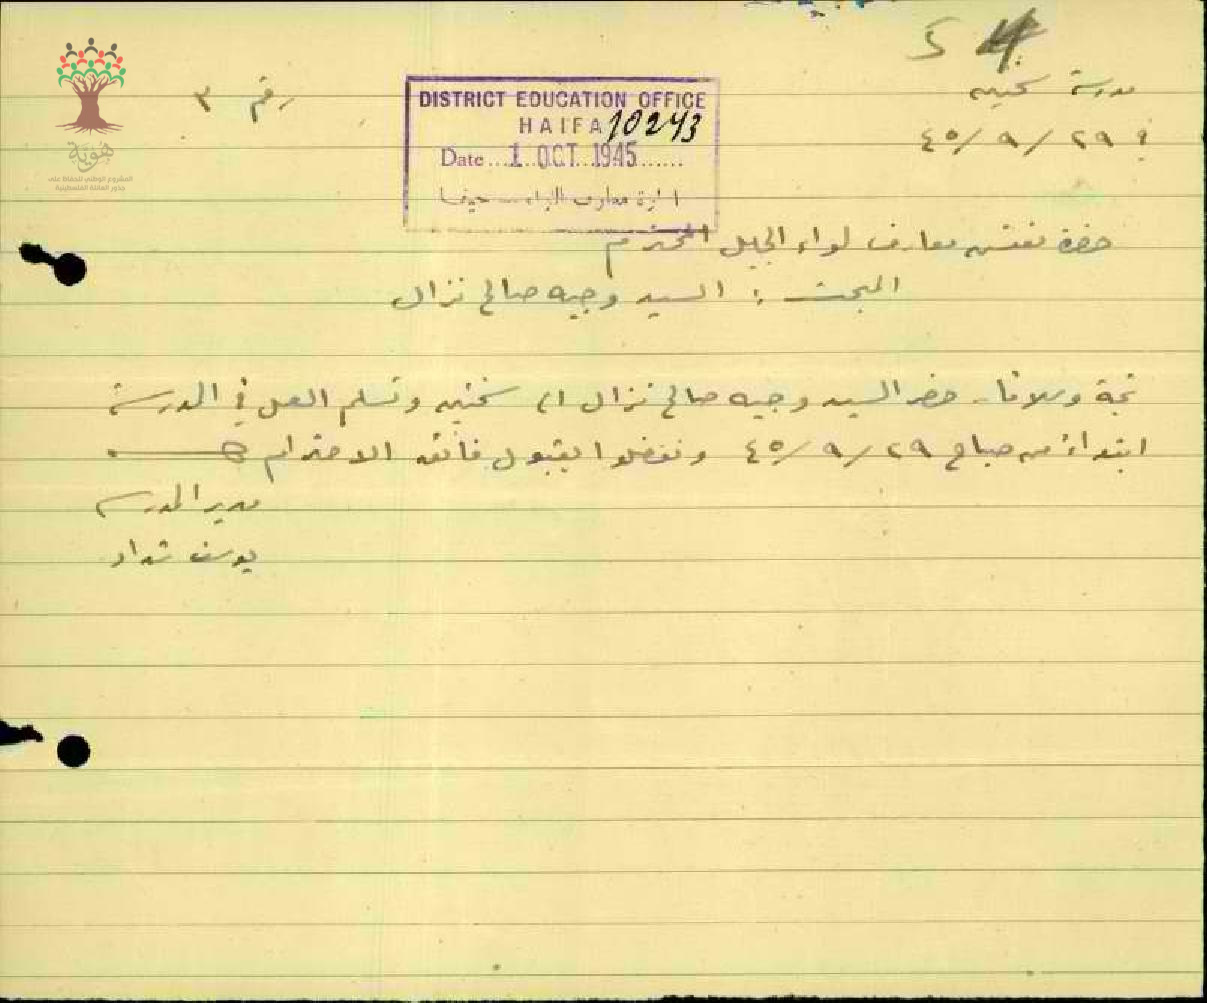 S 4
مدرسة سخنين
في ٢٩ / ٩ / ٤٥
رقم ٣
DISTRICT EDUCATION OFFICE
HAIFA 10243
Date...1 OCT 1945......
ادارة معارف اللواء حيفا
حضرة مفتش معارف لواء الجليل المحترم
المبحث : السيد وجيه صالح نزال
تحية وسلاما. حضر السيد وجيه صالح نزال الى سخنين وتسلم العمل في المدرسة
ابتداءً من صباح ٢٩ / ٩ / ٤٥ وتفضلوا بقبول فائق الاحترام
مدير المدرسة
يوسف شداد
هوية
المشروع الوطني للحفاظ على
جذور العائلة الفلسطينية